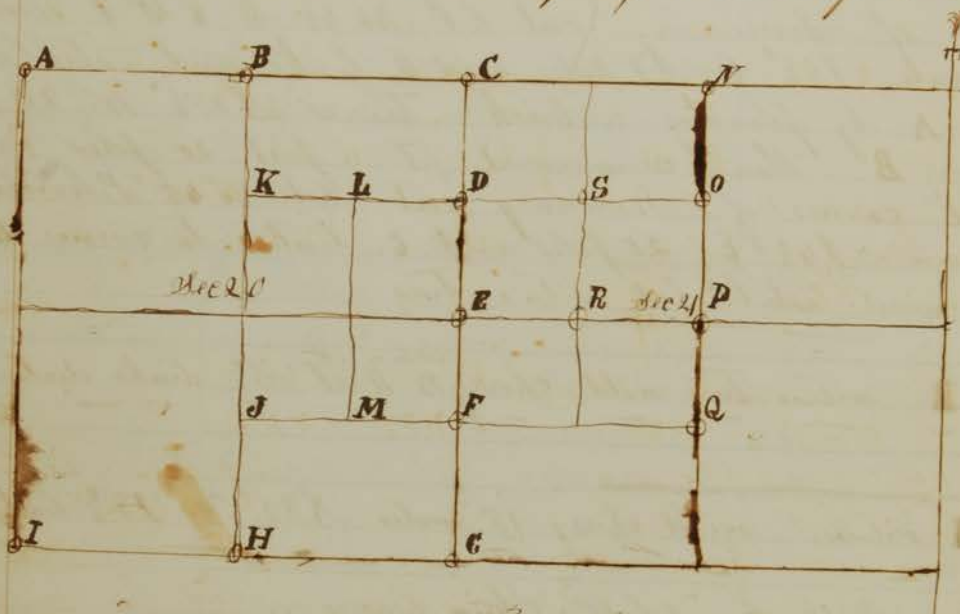 A B C N
K L D S O
Sec 20 E R Sec 21 P
J M F Q
I H G